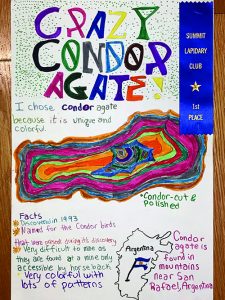 CRAZY
CONDOR
AGATE!
SUMMIT
LAPIDARY
CLUB
1st
PLACE
I chose condor agate
because it is unique and
colorful.
*Condor-cut &
polished
Facts
Discovered in 1993
Named for the Condor birds
that were present during its discovery
Very difficult to mine as
they are found at a mine only
accessible by horseback
Very colorful with
lots of patterns
Argentina
Condor
agate is
found in
mountains
near San
Rafael, Argentina